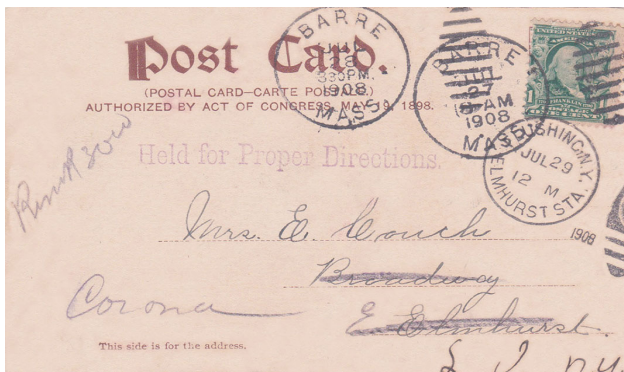 Post Card.
(POSTAL CARD—CARTE POSTALE.)
AUTHORIZED BY ACT OF CONGRESS, MAY 19, 1898.
BARRE
JUL
28
330PM.
1908
MASS.
BARRE
JUL
27
AM
1908
MASS.
UNITED STATES
FRANKLIN
1
ONE CENT
FLUSHING, N.Y.
JUL 29
12 M
ELMHURST STA.
1908
Held for Proper Directions.
Mrs. E. Couch
Broadway
Corona
Elmhurst.
L I N.Y.
This side is for the address.